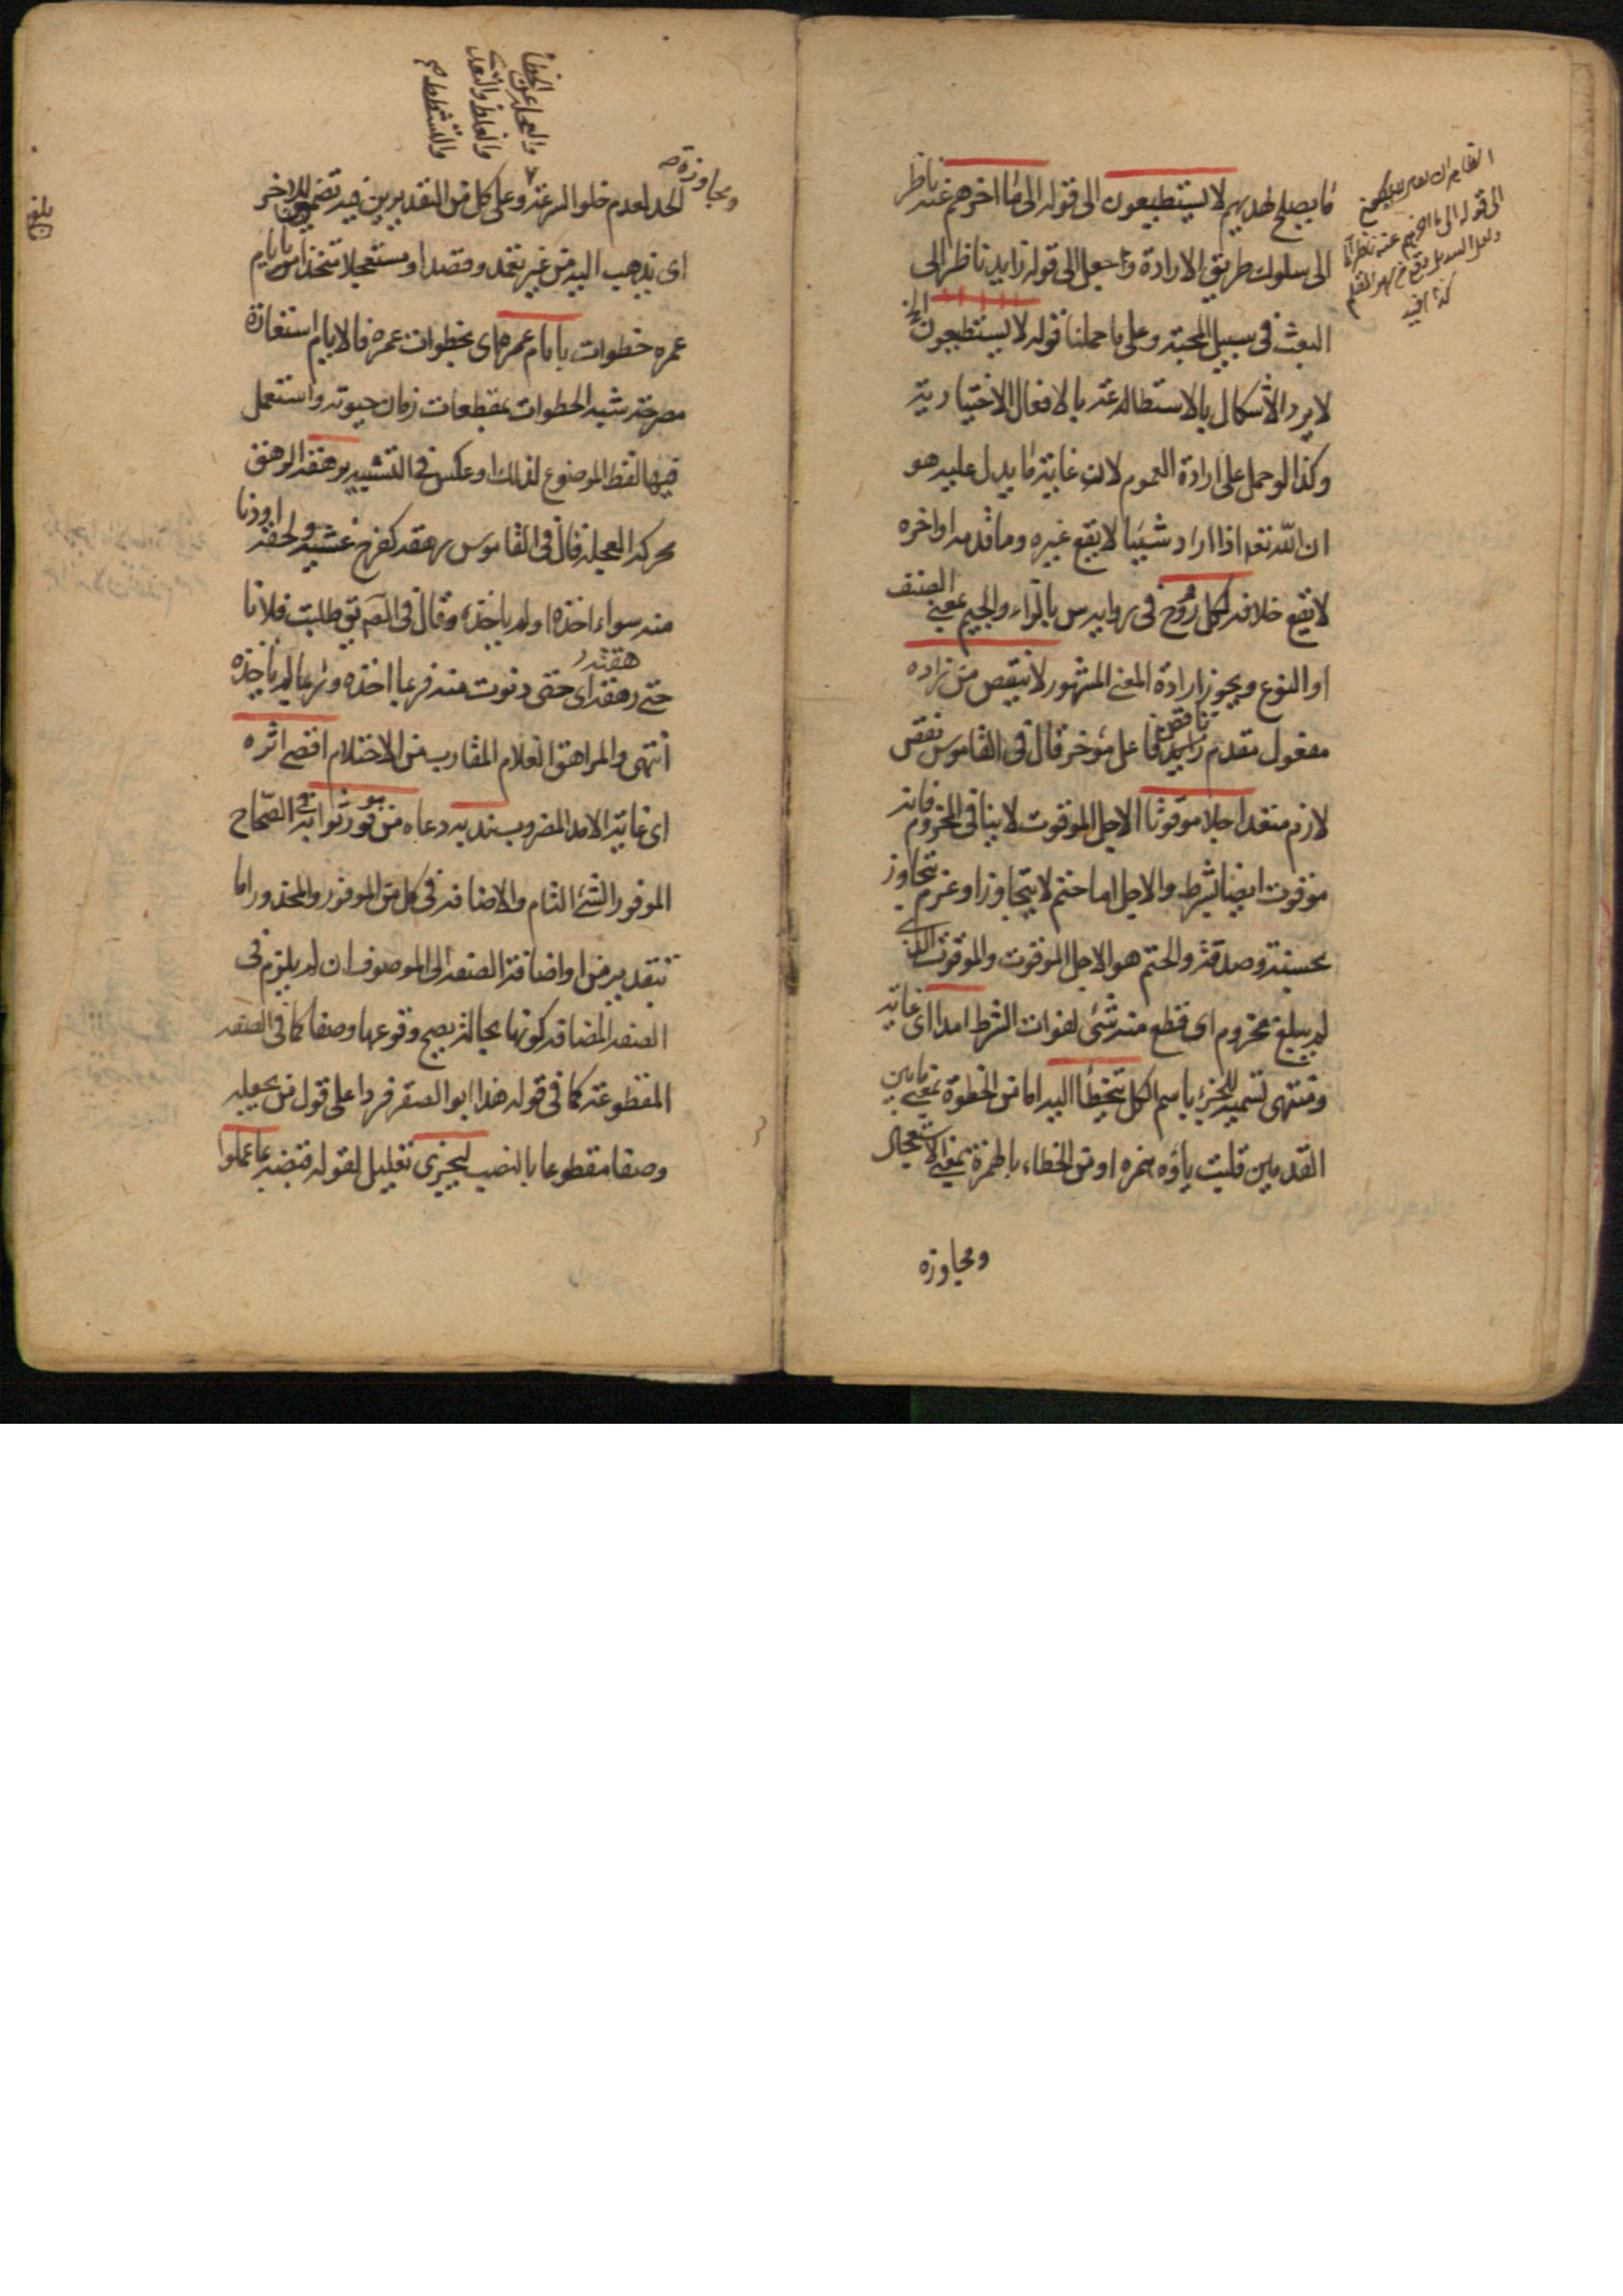 ما يصلح لهديهم لا يستطيعون الى قوله الى ما اخرهم عنه ناظر
الى سلوك طريق الارادة وجعل الى قوله زايد ناظر الى
البعث فى سبيل المحبة وعلى ما حملنا قوله لا يستطيعون الخ
لا يرد الأشكال بالاستطالة عنه بالافعال الاختيارية
وكذا لو حمل على ارادة العموم لان غاية ما يدل عليه هو
ان الله تعه اذا اراد شيئا لا يقع غيره وما قدمه او اخره
لا يقع خلافه لكل روح فى رواية س بالزاء والجيم بمعنى الصنف
او النوع ويجوز ارادة المعنى المشهور لا ينقص من زاده
مفعول مقدم ناقص زايد فاعل مؤخر قال فى القاموس نقص
لازم متعد اجلا موقوتا الاجل الموقوت لا ينافى المخروم فانه
موقوت ايضا بشرط والاجل اما حتم لا يتجاوز او مخروم يتجاوز
بحسنة وصدقة والحتم هو الاجل الموقوت والموقوت الذى
لم يبلغ مخروم اى قطع منه شئ لفوات الشرط امدا اى غاية
ومنتهى تسمية للجزء باسم الكل يتخطأ اليه اما من الخطوة بمعنى ما بين
القدمين قلبت ياؤه همزه او من الخطاء بالهمزة بمعنى الاستعجال
ومجاوزه
ومجاوزة
الحد لعدم خلو المرء عنه وعلى كل من التقديرين فيه تضمين للاخر
اى يذهب اليه من غير تعمد وقصد او مستعجلا متخذا من ايام
عمره خطوات بايام عمره اى بخطوات عمره فالايام استعارة
مصرحة شبه الخطوات بمقطعات زمان حيوته واستعمل
فيها لفظ الموضوع لذلك او عكس فى التشبيه يرهقه الرهق
محركه العجله قال فى القاموس رهقه كفرح غشيه ولحقه او دنا
منه سواء اخذه او لم ياخذه وقال فى الصه يق طلبت فلانا
حتى رهقته اى حتى دنوت منه فربما اخذه وربما لم ياخذه
انتهى والمراهق الغلام المقارب من الاحتلام اقصى اثره
اى غاية الامد المضروب ندبه دعاه من موفور ثوابه فى الصحاح
الموفور الشئ التام والاضافة فى كل من الموفور والمحذور اما
بتقدير من او اضافة الصفة الى الموصوف ان لم يلزم فى
الصفة المضافه كونها بحالة يصح وقوعها وصفا كما فى الصفة
المقطوعة كما فى قوله هذا ابو الصقر فردا على قول من يجعله
وصفا مقطوعا بالنصب ليجزى تعليل لقوله قبضه بما عملوا